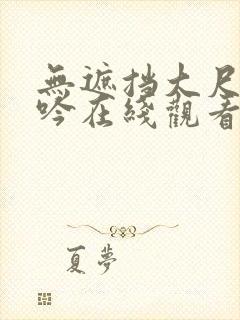 無遮挡大尺
吟在綫觀看
夏夢